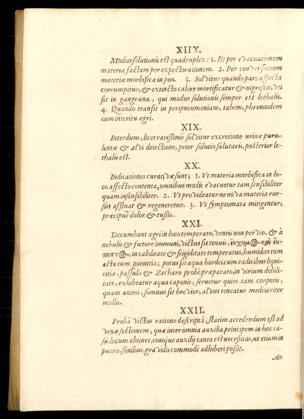 XIIX.
Modus solutionis est quadruplex: 1. Fit per evacuationem
materiæ factam per expectorationem. 2. Per conversionem
materiæ morbificæ in pus. 3. Solvitur quando pars affecta
corrumpitur, & extincto calore mortificatur & nigrescit, vel
sit in gangræna, qui modus solutionis semper est lethalis.
4. Quando transit in peripneumoniam, tabem, phrenitidem
cum interitu ægri.
XIX.
Interdum, licet rarissimè solvitur excretione urinæ puru-
lentæ & alvi dejectione, prior solutio salutaris, posterior le-
thalis est.
XX.
Indicationes curativæ sunt; 1. Ut materia morbifica in lo-
co affecto contenta, omnibus modis evacuetur tam sensibiliter
quam insensibiliter. 2. Ut provideatur ne nova materia rur-
sus affluat & regeneretur. 3. Ut symptomata mitigentur,
præcipuè dolor & tussis.
XXI.
Decumbant ægri in loco temperato, vento non pervio, & à
nebulis & fœtore immuni, victus sit tenuis,
in caliditate & frigiditate temperatus, humidus tum
actu tum potentia; potus sit aqua hordei cum radicibus liqui-
ritiæ, passulis & Zacharo probè præparato, in virium debili-
tate, exhibeatur aqua caponis, servetur quies tam corporis
quam animi, somnus sit brevior, alvus teneatur mediocriter
mollis.
XXII.
Probâ victus ratione descriptâ, statim accedendum est ad
venæ sectionem, quæ inter omnia auxilia principem in hoc ca-
su locum obtinet, ejusque auxilij tanta est necessitas, ut etiam in
pueris senibus gravidis commodè adhiberi possit.
An